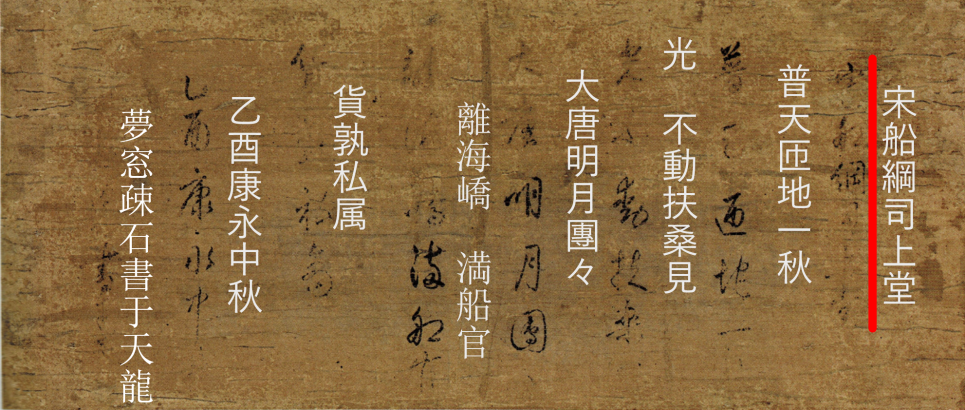 宋船綱司上堂
普天匝地一秋
光 不動扶桑見
大唐明月團々
離海嶠 満船官
貨孰私属
乙酉康永中秋
夢窓疎石書于天龍